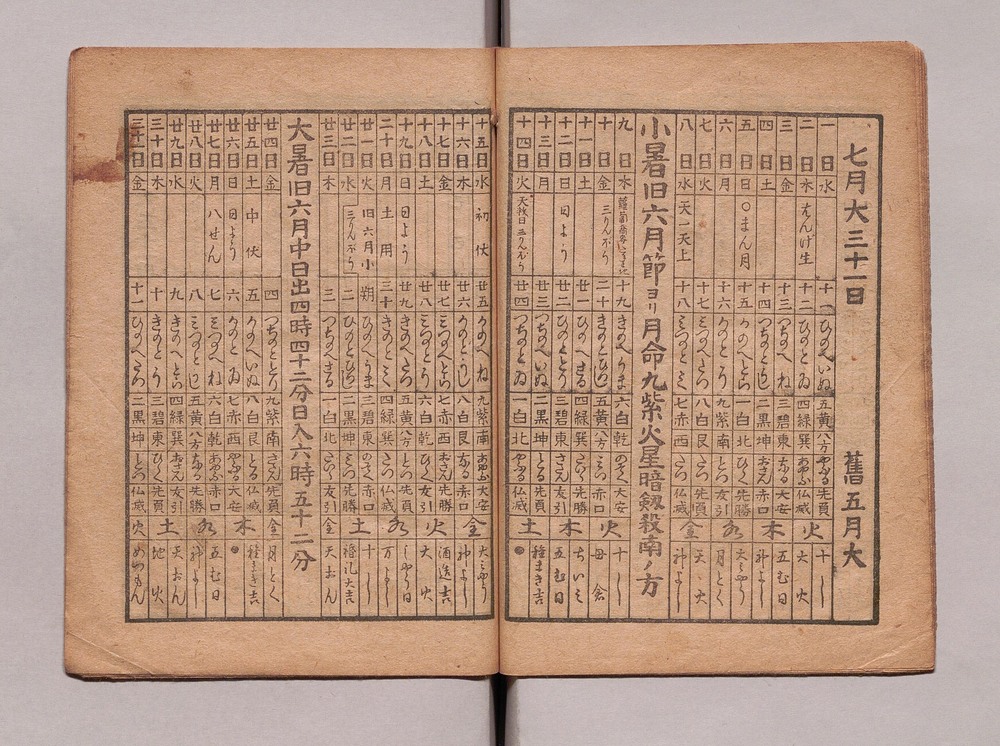 七月大三十一日 舊五月大
一日水 十一 ひのへいぬ 五黄 八方 やぶる 先負 十し
二日木 はんげ生 十二 ひのとゐ 四緑 巽 あやふ 仏滅 大火
三日金 十三 つちのへね 三碧 東 なる 大安 五む日
四日土 十四 つちのとうし 二黒 坤 おさん 赤口 神よし
五日日 〇まん月 十五 一白 北 ひらく 先勝
六日月 十六 九紫 南 とづ 友引 月とく
七日火 十七 八白 艮 たつ 先負 天火
八日水 天一天上 十八 みづのとみ 七赤 西 たつ 仏滅 神よし
小暑旧六月節ヨリ月命九紫火星暗剣殺南ノ方
九日木 十九 きのへうま 六白 乾 のぞく 大安 十し
十日金 三りんぼう 二十 きのとひつじ 五黄 八方 みつ 赤口 母倉
十一日土 廿一 ひのへさる 四緑 巽 たいら 先勝 ちいみ
十二日日 日よう 廿二 ひのととり 三碧 東 さだん 友引 五む日
十三日月 廿三 つちのへいぬ 二黒 坤 とる 先負 種まき吉
十四日火 天赦日 三りんぼう 廿四 つちのとゐ 一白 北 やぶる 仏滅 ●
十五日水 初伏 廿五 かのへね 九紫 南 あやふ 大安 大みやう
十六日木 廿六 かのとうし 八白 艮 なる 赤口 神よし
十七日金 廿七 みづのへとら 七赤 西 おさん 先勝
十八日土 廿八 みづのとう 六白 乾 ひらく 友引 大火
十九日日 日よう 廿九 きのへたつ 五黄 八方 とづ 先負
二十日月 土用 三十 きのとみ 四緑 巽 とづ 仏滅 万よし
廿一日火 旧六月小 朔 ひのへうま 三碧 東 のぞく 赤口 十し
廿二日水 三りんぼう 二 ひのとひつじ 二黒 坤 みつ 先勝 婚礼大吉
廿三日木 三 つちのへさる 一白 北 たいら 友引 天おん
大暑旧六月中日出四時四十二分日入六時五十二分
廿四日金 四 つちのととり 九紫 南 さだん 先負 月とく
廿五日土 中伏 五 かのへいぬ 八白 艮 とる 仏滅 種まき吉
廿六日日 日よう 六 かのとゐ 七赤 西 やぶる 大安 ●
廿七日月 八せん 七 みづのへね 六白 乾 あやふ 赤口 五む日
廿八日火 八 みづのとうし 五黄 八方 なる 先勝 神よし
廿九日水 九 きのへとら 四緑 巽 おさん 友引 天おん
三十日木 十 きのとう 三碧 東 ひらく 先負 地火
三十一日金 十一 ひのへたつ 二黒 坤 とづ 仏滅 めつもん